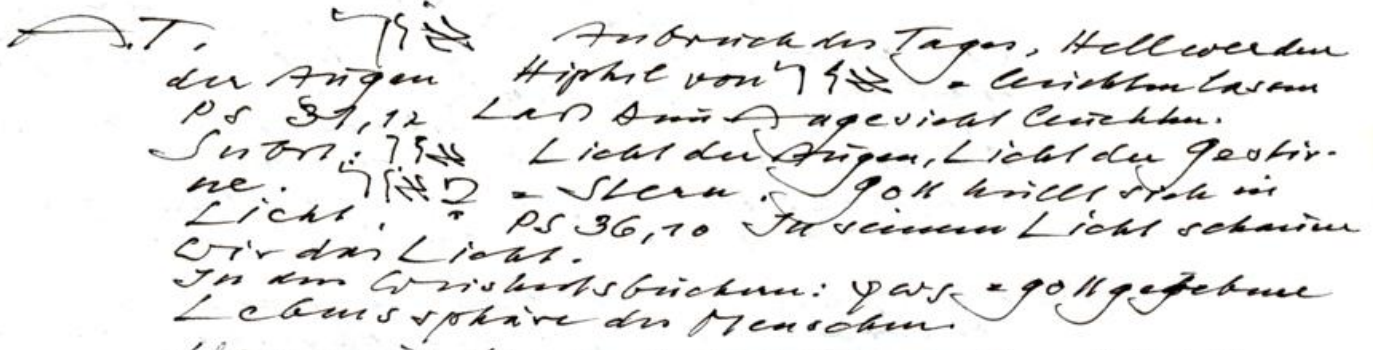 A.T. אור Anbruch des Tages, Hellwerden
der Augen Hiphil von אור = leuchten lassen
PS 31,12 Laß dein Angesicht leuchten.
Subst.: אור Licht der Augen, Licht der Gestir-
ne. מאור = Stern. Gott hüllt sich in
Licht. PS 36,10 In seinem Licht schauen
wir das Licht.
In den Weisheitsbüchern: φως = gottgegebene
Lebenssphäre des Menschen.